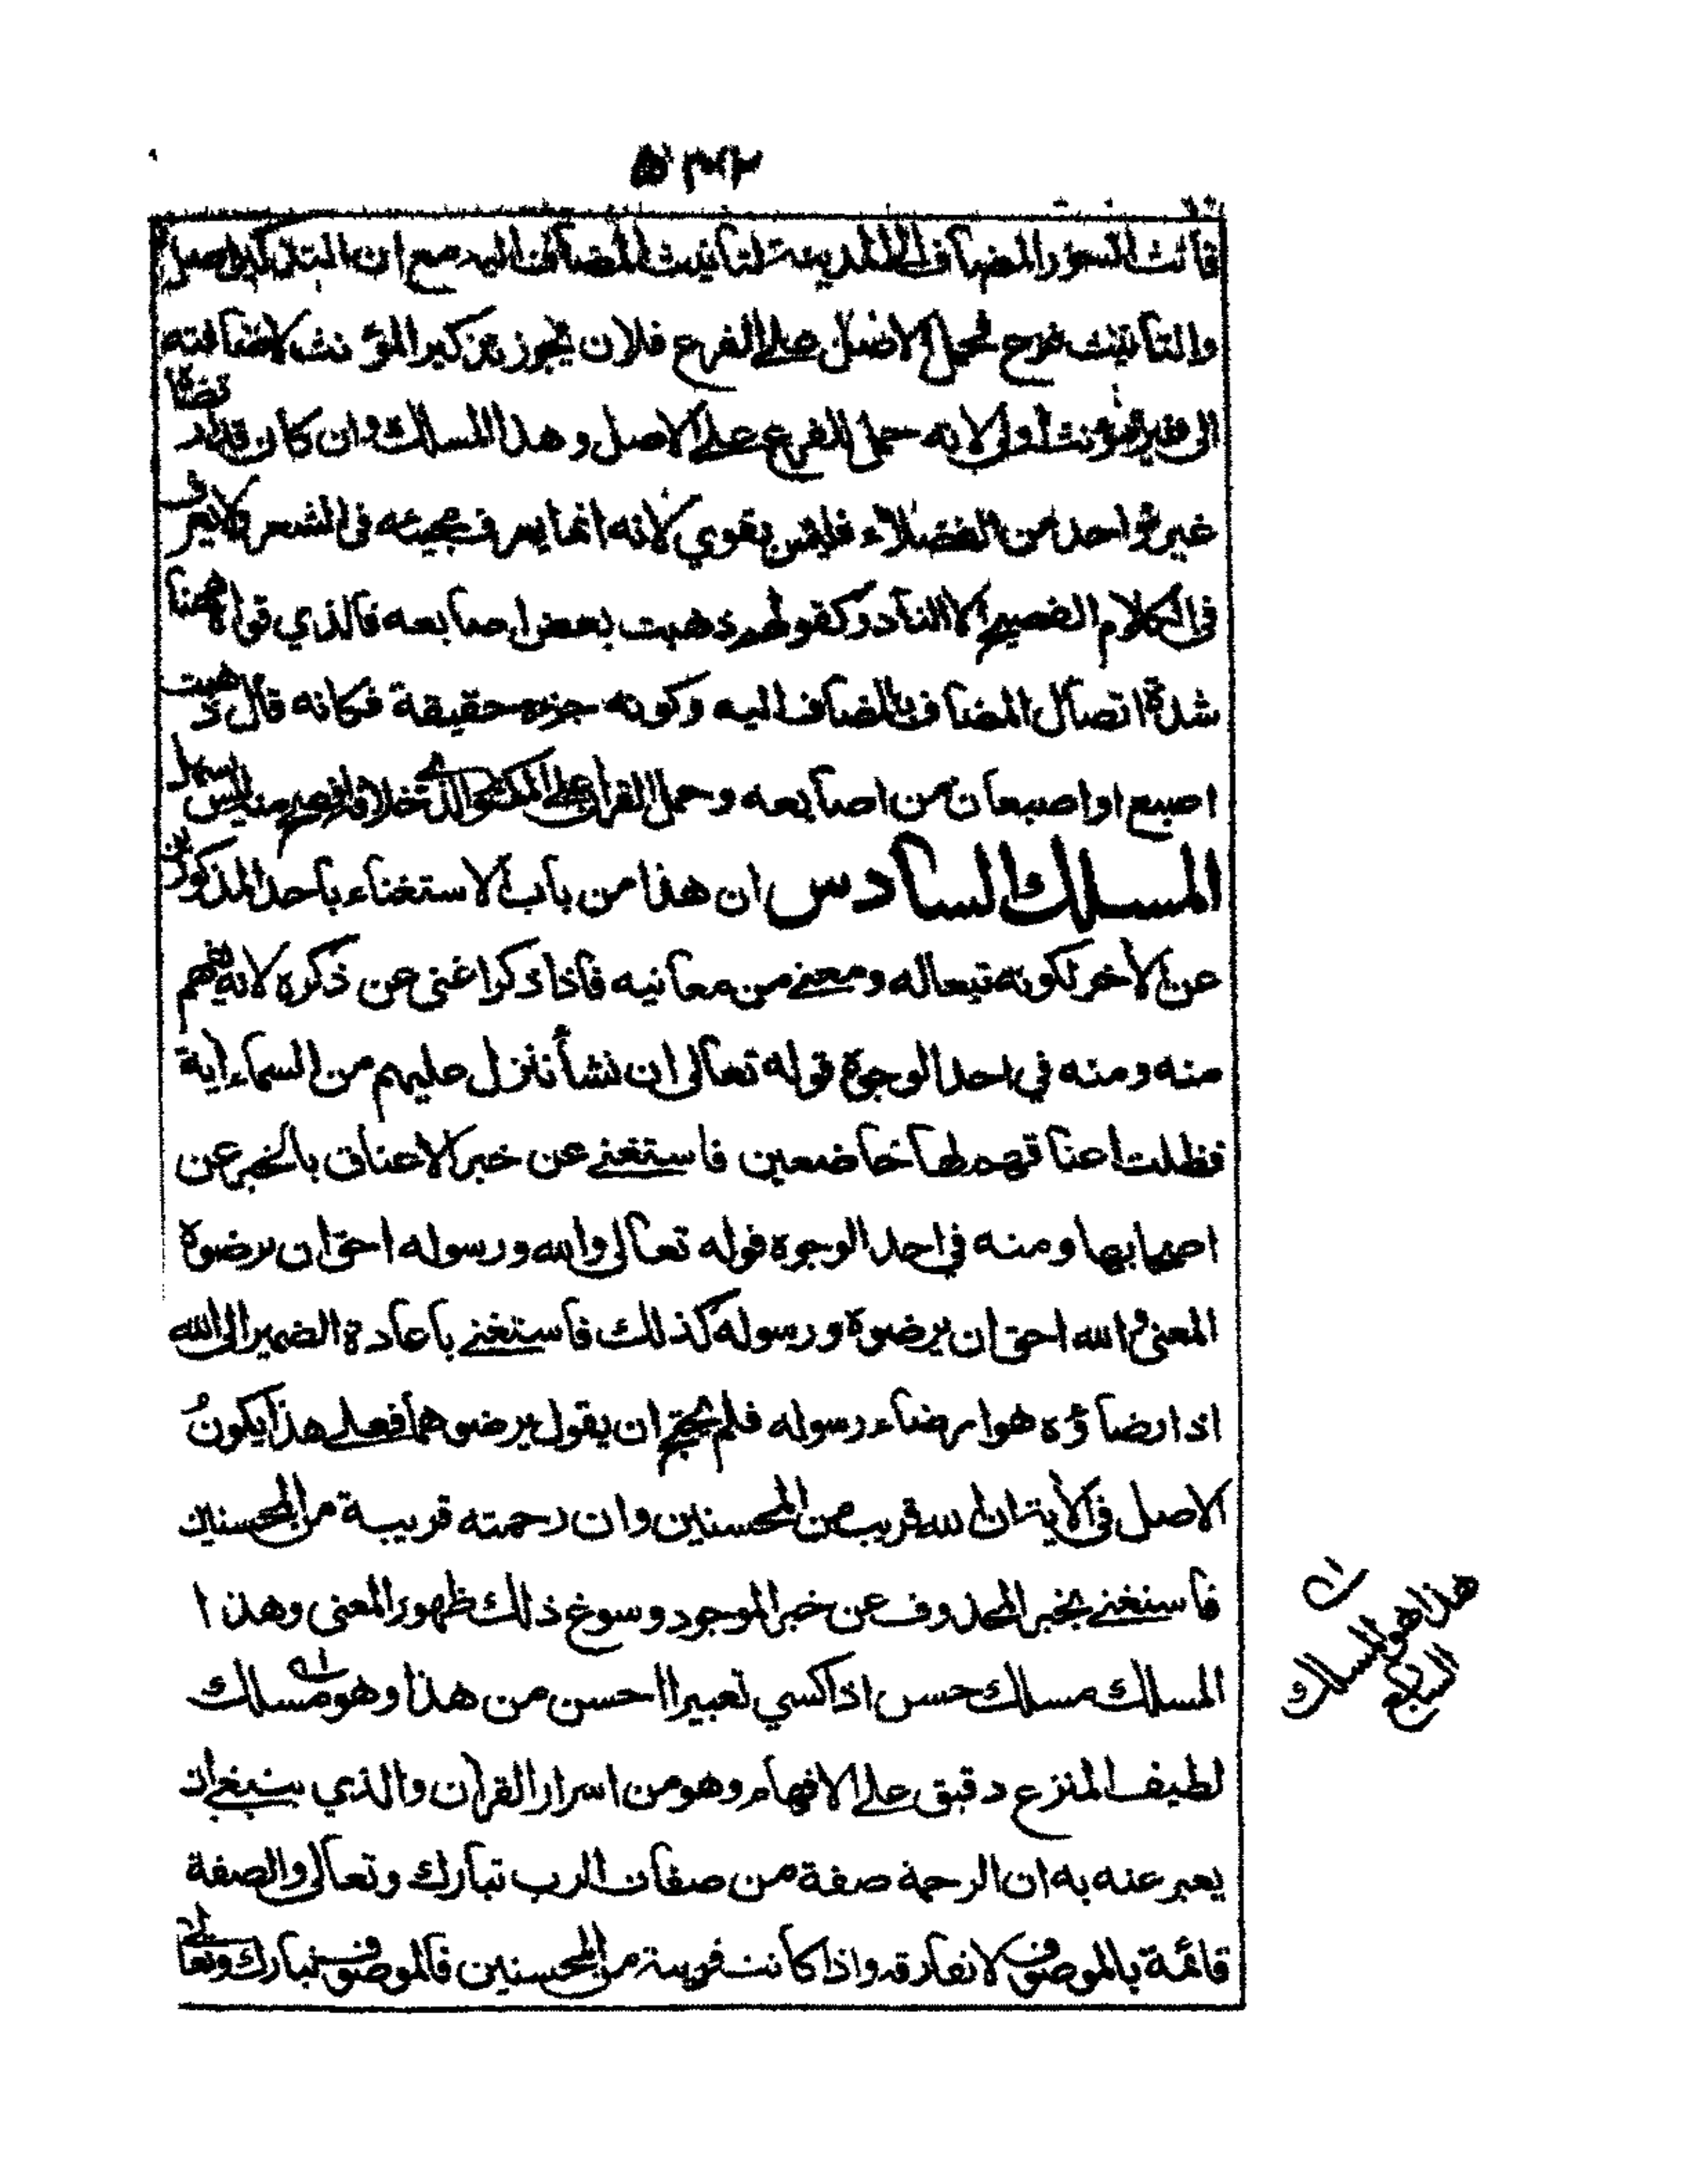 فأنث السور المضاف الى المدينة لتأنيث المضاف اليه مع ان التذكير اصل
والتأنيث فرع لحمل الاصل على الفرع فلان يجوز تذكير المؤنث لاضافته
الى غير مؤنث اولى لانه حمل للفرع على الاصل وهذا المسلك وان كان قد ارتضاه
غير واحد من الفضلاء فليس بقوي لانه انما يعرف مجيئه في الشعر ولا يعرف
في الكلام الفصيح الا النادر كقولهم ذهبت بعض اصابعه فالذي قواه ههنا
شدة اتصال المضاف بالمضاف اليه وكونه جزءه حقيقة فكانه قال ذهبت
اصبع او اصبعان من اصابعه وحمل القرآن على المكثور الذي خلافه افصح منه ليس بسهل
المسلك السادس ان هذا من باب الاستغناء باحد المذكورين
عن الاخر لكونه تبعا له ومعنى من معانيه فاذا ذكر اغنى عن ذكره لانه يفهم
منه ومنه في احد الوجوه قوله تعالى ان نشأ ننزل عليهم من السماء اية
فظلت اعناقهم لها خاضعين فاستغنى عن خبر الاعناق بالخبر عن
اصحابها ومنه في احد الوجوه قوله تعالى والله ورسوله احق ان يرضوه
المعنى والله احق ان يرضوه ورسوله كذلك فاستغنى باعادة الضمير الى الله
اذا رضاؤه هو ارضاء رسوله فلم يحتج ان يقول يرضوهما فعلى هذا يكون
الاصل في الاية ان الله قريب من المحسنين وان رحمته قريبة من المحسنين
فاستغنى بخبر المحذوف عن خبر الموجود وسوغ ذلك ظهور المعنى وهذا
المسلك مسلك حسن اذا كسي تعبيرا احسن من هذا وهو مسلك
لطيف المنزع دقيق على الافهام وهو من اسرار القرآن والذي ينبغي ان
يعبر عنه به ان الرحمة صفة من صفات الرب تبارك وتعالى والصفة
قائمة بالموصوف لا تفارقه واذا كانت قريبة من المحسنين فالموصوف تبارك وتعالى
هذا هو المسلك
الرابع